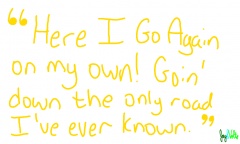 "Here I Go Again
on my own! Goin'
down the only road
I've ever known."